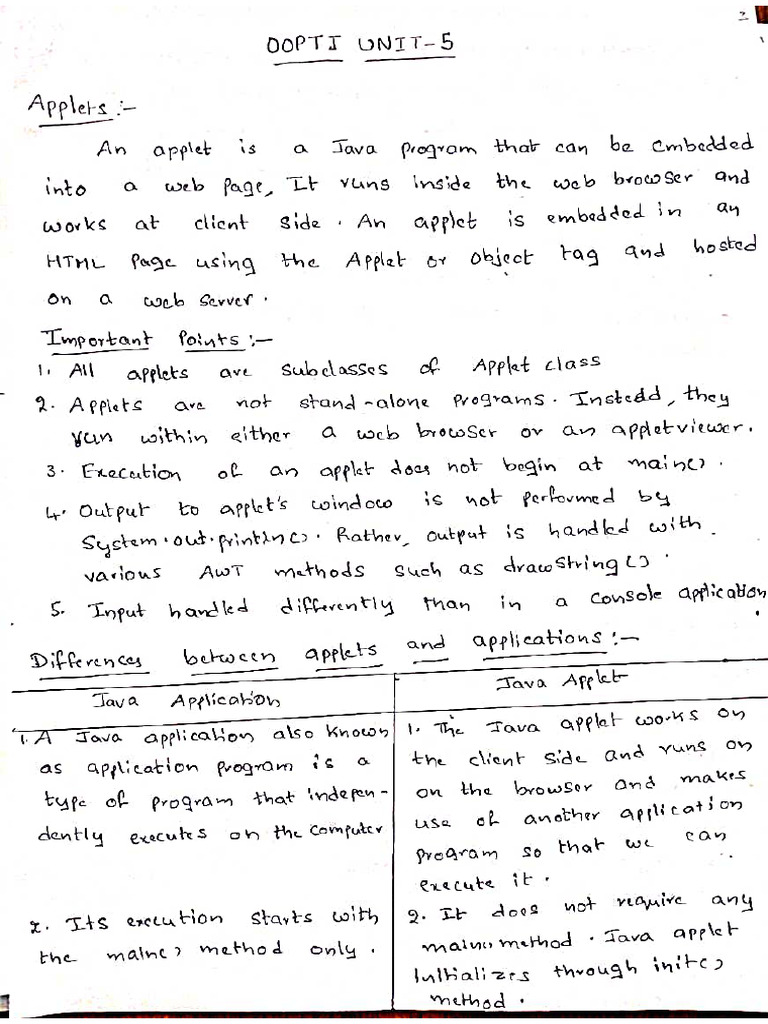 OOPTJ UNIT-5
Applets :-
An applet is a Java program that can be embedded
into a web page, It runs inside the web browser and
works at client side. An applet is embedded in an
HTML page using the Applet or object tag and hosted
on a web server.
Important Points :-
1. All applets are subclasses of Applet class
2. Applets are not stand-alone programs. Instedd, they
run within either a web browser or an appletviewer.
3. Execution of an applet does not begin at main().
4. Output to applet's window is not performed by
System.out.println(). Rather, output is handled with
various AWT methods such as drawString().
5. Input handled differently than in a console application.
Differences between applets and applications :-
Java Application
1. A Java application also known
as application program is a
type of program that indepen-
dently executes on the computer
2. Its execution starts with
the main() method only.
Java Applet
1. The Java applet works on
the client side and runs on
on the browser and makes
use of another application
program so that we can
execute it.
2. It does not require any
main() method. Java applet
Initializes through init()
method.